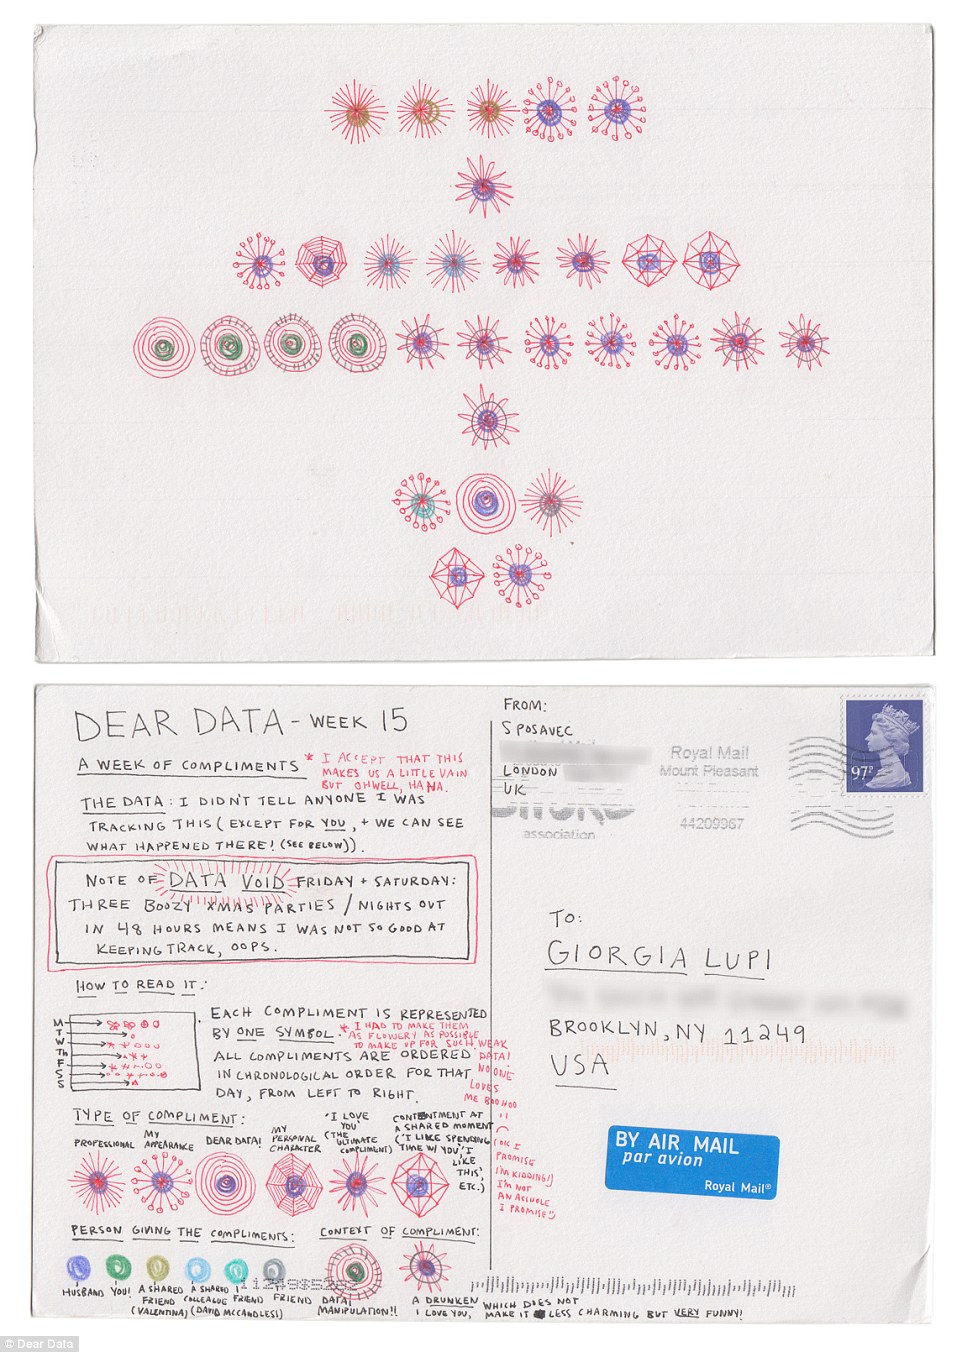 DEAR DATA - WEEK 15
A WEEK OF COMPLIMENTS
* I ACCEPT THAT THIS
MAKES US A LITTLE VAIN
BUT OHWELL, HAHA.
THE DATA: I DIDN'T TELL ANYONE I WAS
TRACKING THIS (EXCEPT FOR YOU, + WE CAN SEE
WHAT HAPPENED THERE! (SEE BELOW)).
NOTE OF DATA VOID FRIDAY + SATURDAY:
THREE BOOZY XMAS PARTIES / NIGHTS OUT
IN 48 HOURS MEANS I WAS NOT SO GOOD AT
KEEPING TRACK, OOPS.
HOW TO READ IT:
M
T
W
TH
F
S
S
EACH COMPLIMENT IS REPRESENTED
BY ONE SYMBOL.
* I HAD TO MAKE THEM
AS FLOWERY AS POSSIBLE
TO MAKE UP FOR SUCH WEAK
DATA!
NO ONE
LOVES
ME BOOHOO
(OK I
PROMISE
I'M KIDDING!)
I'M NOT
AN ASSHOLE
I PROMISE
ALL COMPLIMENTS ARE ORDERED
IN CHRONOLOGICAL ORDER FOR THAT
DAY, FROM LEFT TO RIGHT.
TYPE OF COMPLIMENT:
PROFESSIONAL
MY
APPEARANCE
DEAR DATA!
MY
PERSONAL
CHARACTER
'I LOVE
YOU'
(THE
ULTIMATE
COMPLIMENT)
CONTENTMENT AT
A SHARED MOMENT
('I LIKE SPENDING
TIME W/ YOU', 'I
LIKE
THIS',
ETC.)
PERSON GIVING THE COMPLIMENTS:
HUSBAND
YOU!
A SHARED
FRIEND
(VALENTINA)
A SHARED
COLLEAGUE
(DAVID MCCANDLESS)
FRIEND
FRIEND
CONTEXT OF COMPLIMENT:
DATA
MANIPULATION!!
A DRUNKEN
I LOVE YOU,
WHICH DOES NOT
MAKE IT LESS CHARMING BUT VERY FUNNY!
FROM:
S POSAVEC
LONDON
UK
association
Royal Mail
Mount Pleasant
44209967
97P
TO:
GIORGIA LUPI
BROOKLYN, NY 11249
USA
BY AIR MAIL
par avion
Royal Mail®
© Dear Data